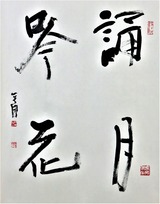 誦月
吟花